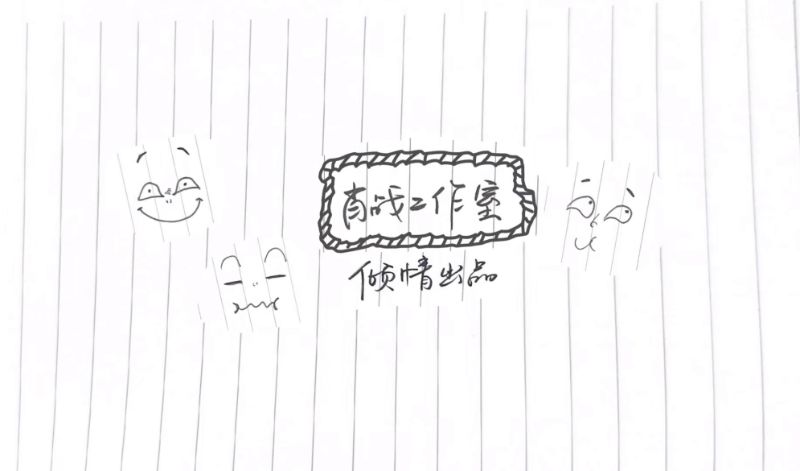 肖战工作室
倾情出品